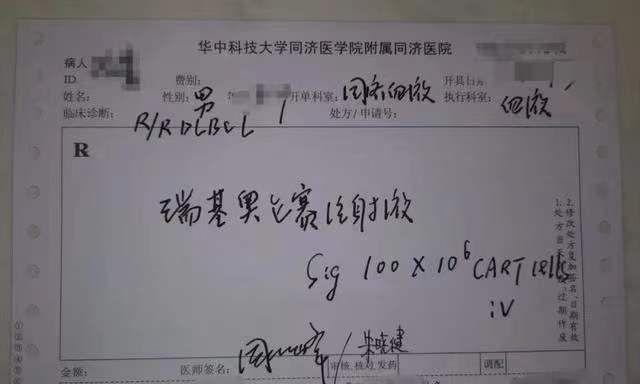 华中科技大学同济医学院附属同济医院
病人
ID.
费别:
开具日
姓名:
性别: 男
开单科室: 同济血液
执行科室: 血液
临床诊断: R/R DLBCL
处方/申请号:
R
瑞基奥仑赛注射液
Sig 100 X 10⁶ CART cells
iv
2.修改处方复加签名、日期有效
1.处方当天
过期作废
金额:
医师签名:
朱晓健
审核、核、发药
调配